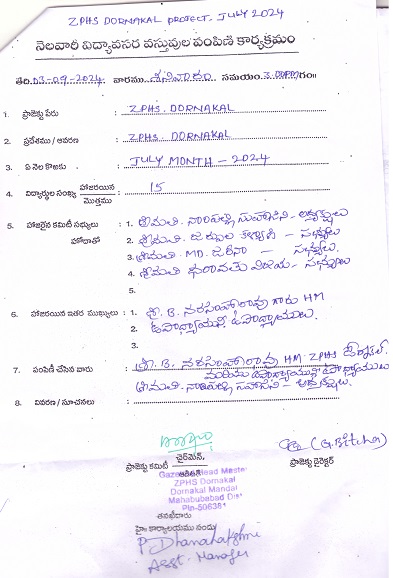 ZPHS DORNAKAL PROJECT. JULY 2024
నెలవారీ విద్యావసర వస్తువుల పంపిణి కార్యక్రమం
తేది: 03-09-2024. వారము శనివారం సమయం: 3.00PMగం॥
1. ప్రాజెక్టు పేరు : ZPHS. DORNAKAL
2. ప్రదేశము / ఆవరణ : ZPHS. DORNAKAL
3. ఏ నెల కొఱకు : JULY MONTH - 2024
4. విద్యార్థుల సంఖ్య హాజరయిన మొత్తము : 15
5. హాజరైన కమిటీ సభ్యులు హోదాతో : 1. శ్రీమతి. సుహాసిని - అధ్యక్షులు
2. శ్రీమతి. కళ్యాణి - సభ్యులు
3. శ్రీమతి. MD. జరీనా - సభ్యులు.
4. శ్రీమతి విజయ - సభ్యులు
5.
6. హాజరయిన ఇతర ముఖ్యులు : 1. శ్రీ. B. నరసింహారావు గారు HM
2. ఉపాధ్యాయినీ ఉపాధ్యాయులు.
3.
7. పంపిణీ చేసిన వారు : శ్రీ. B. నరసింహారావు HM ZPHS డోర్నకల్.
మరియు ఉపాధ్యాయినీ ఉపాధ్యాయులు
శ్రీమతి. సుహాసిని - అధ్యక్షులు.
8. వివరణ / సూచనలు :
(G. Bitcha)
చైర్‌మెన్,
ప్రాజెక్టు కమిటీ ప్రాజెక్టు డైరెక్టర్
Gazetted Head Master
ZPHS Dornakal
Dornakal Mandal
Mahabubabad Dist
Pin-506381
తనఖీదారు
హై కార్యాలయము నందు
P Dhanalakshmi
Asst. Manager